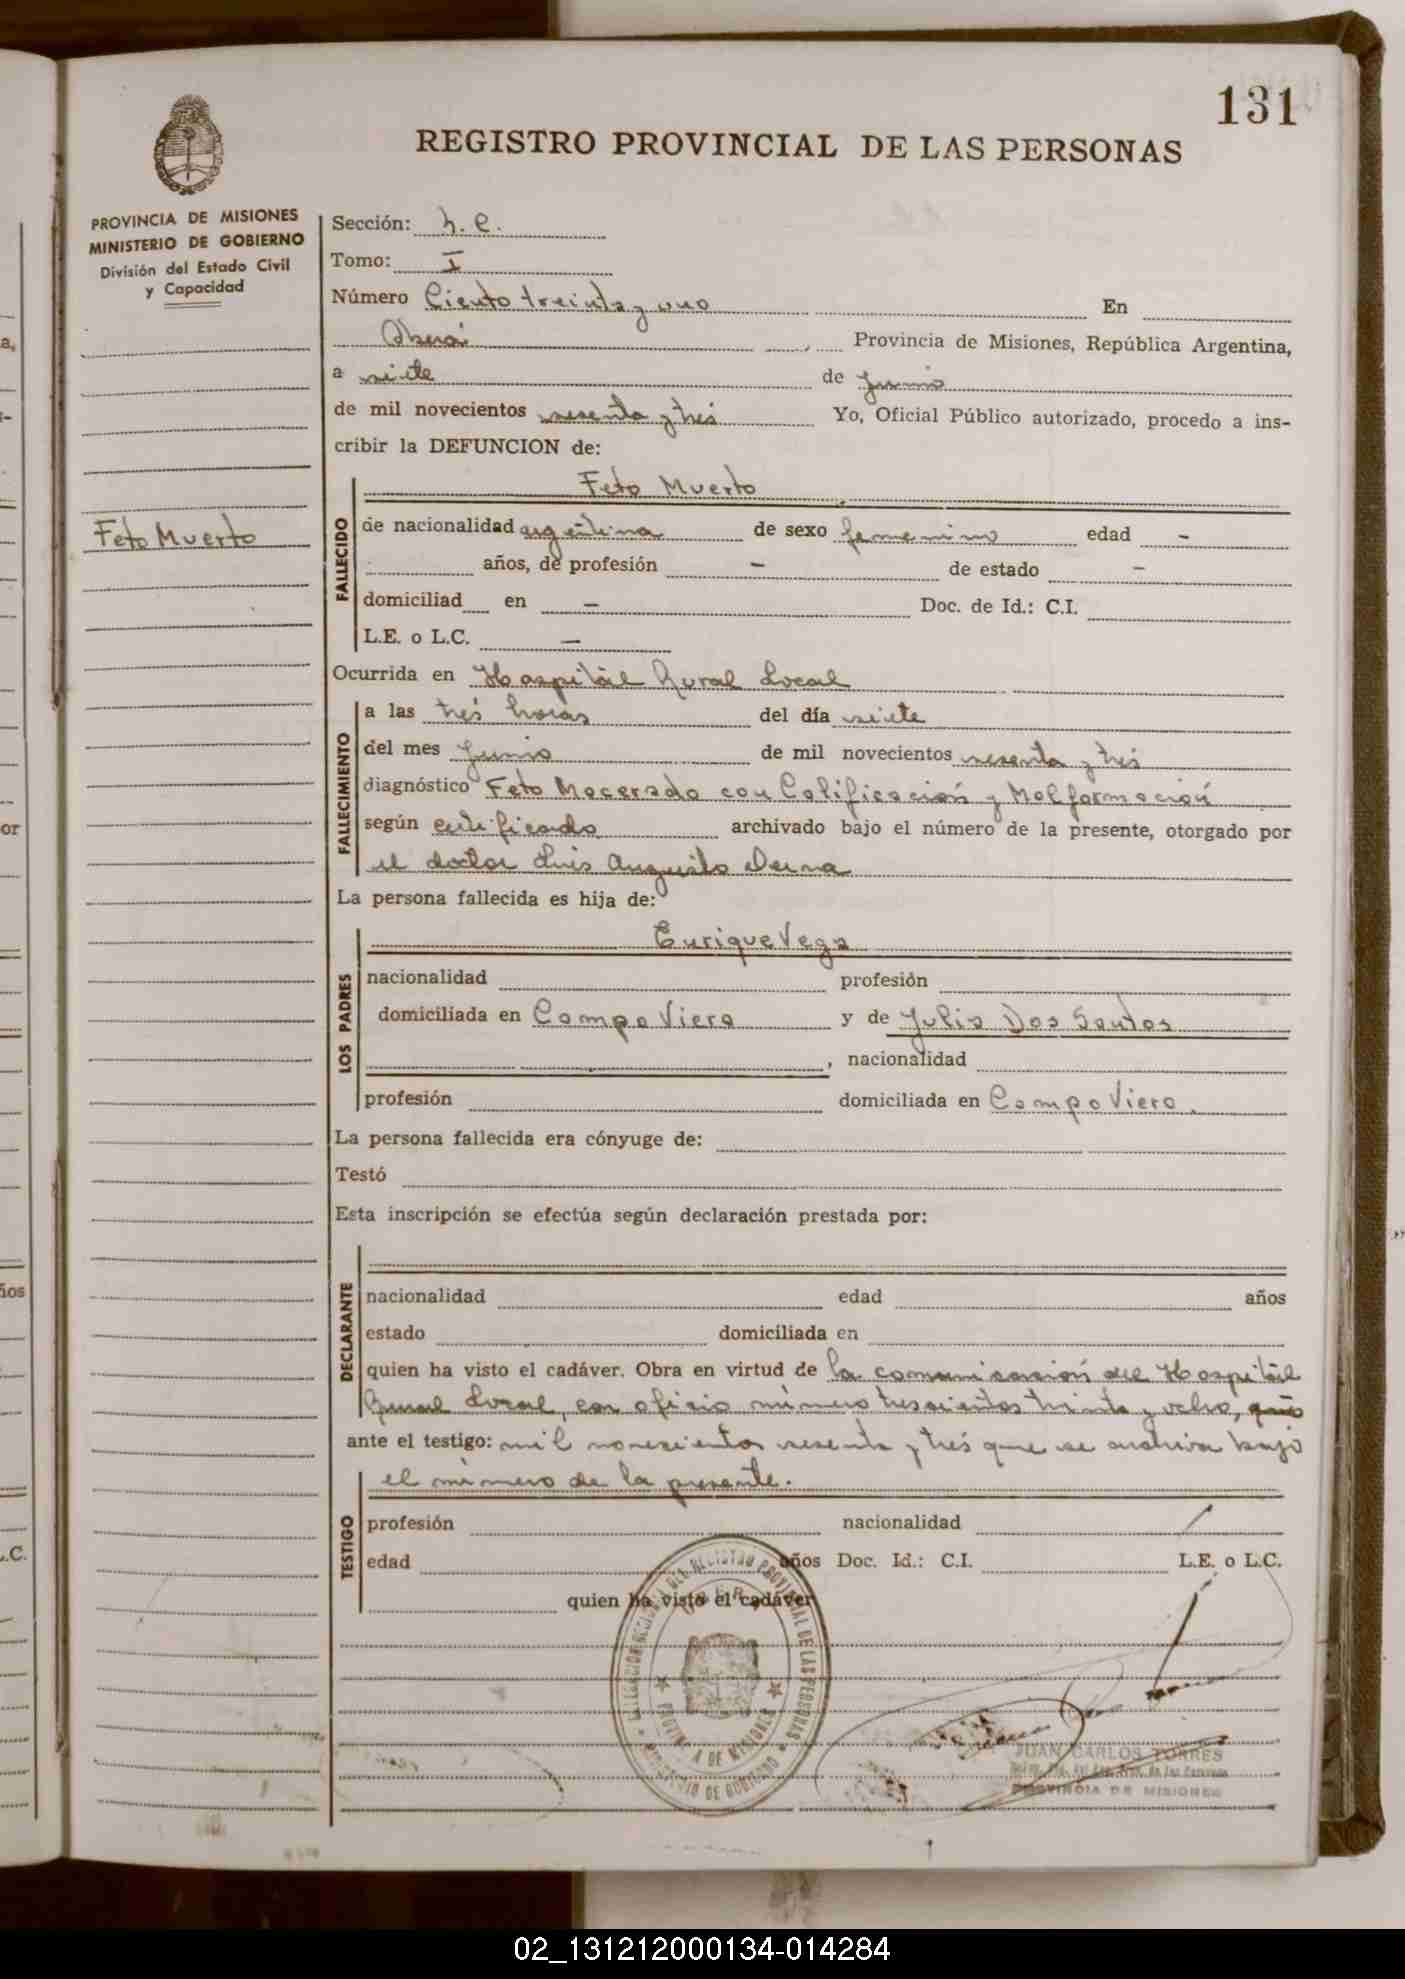 131
REGISTRO PROVINCIAL DE LAS PERSONAS
PROVINCIA DE MISIONES
MINISTERIO DE GOBIERNO
División del Estado Civil
y Capacidad
Feto Muerto
Sección:
Tomo: I
Número Ciento treinta y uno En
Oberá Provincia de Misiones, República Argentina,
a siete de junio
de mil novecientos sesenta y tres Yo, Oficial Público autorizado, procedo a ins-
cribir la DEFUNCION de:
Feto Muerto
FALLECIDO
de nacionalidad argentina de sexo femenino edad -
años, de profesión - de estado -
domiciliad en - Doc. de Id.: C.I.
L.E. o L.C. -
Ocurrida en Hospital Rural Local
FALLECIMIENTO
a las tres horas del día siete
del mes junio de mil novecientos sesenta y tres
diagnóstico Feto Macerado con Calificación y Malformación
según certificado archivado bajo el número de la presente, otorgado por
el doctor Luis Augusto Derna
La persona fallecida es hija de:
LOS PADRES
Enrique Vega
nacionalidad profesión
domiciliada en Campo Viera y de Julia Dos Santos
, nacionalidad
profesión domiciliada en Campo Viera.
La persona fallecida era cónyuge de:
Testó
Esta inscripción se efectúa según declaración prestada por:
DECLARANTE
nacionalidad edad años
estado domiciliada en
quien ha visto el cadáver. Obra en virtud de la comunicación del Hospital
Rural Local, con oficio número trescientos treinta y ocho,
ante el testigo: mil novecientos sesenta y tres que se archiva bajo
el número de la presente.
TESTIGO
profesión nacionalidad
edad años Doc. Id.: C.I. L.E. o L.C.
quien ha visto el cadáver
DELEGACION REGIONAL DEL REGISTRO PROVINCIAL DE LAS PERSONAS
OBERA
PROVINCIA DE MISIONES
MINISTERIO DE GOBIERNO
JUAN CARLOS TORRES
PROVINCIA DE MISIONES
02_131212000134-014284